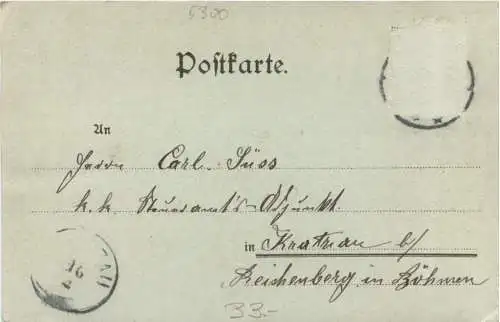 5300
Postkarte.
An
Herrn Carl Süss
k. k. Steueramts-Adjunkt
in Kratzau b/
Reichenberg in Böhmen
33.-